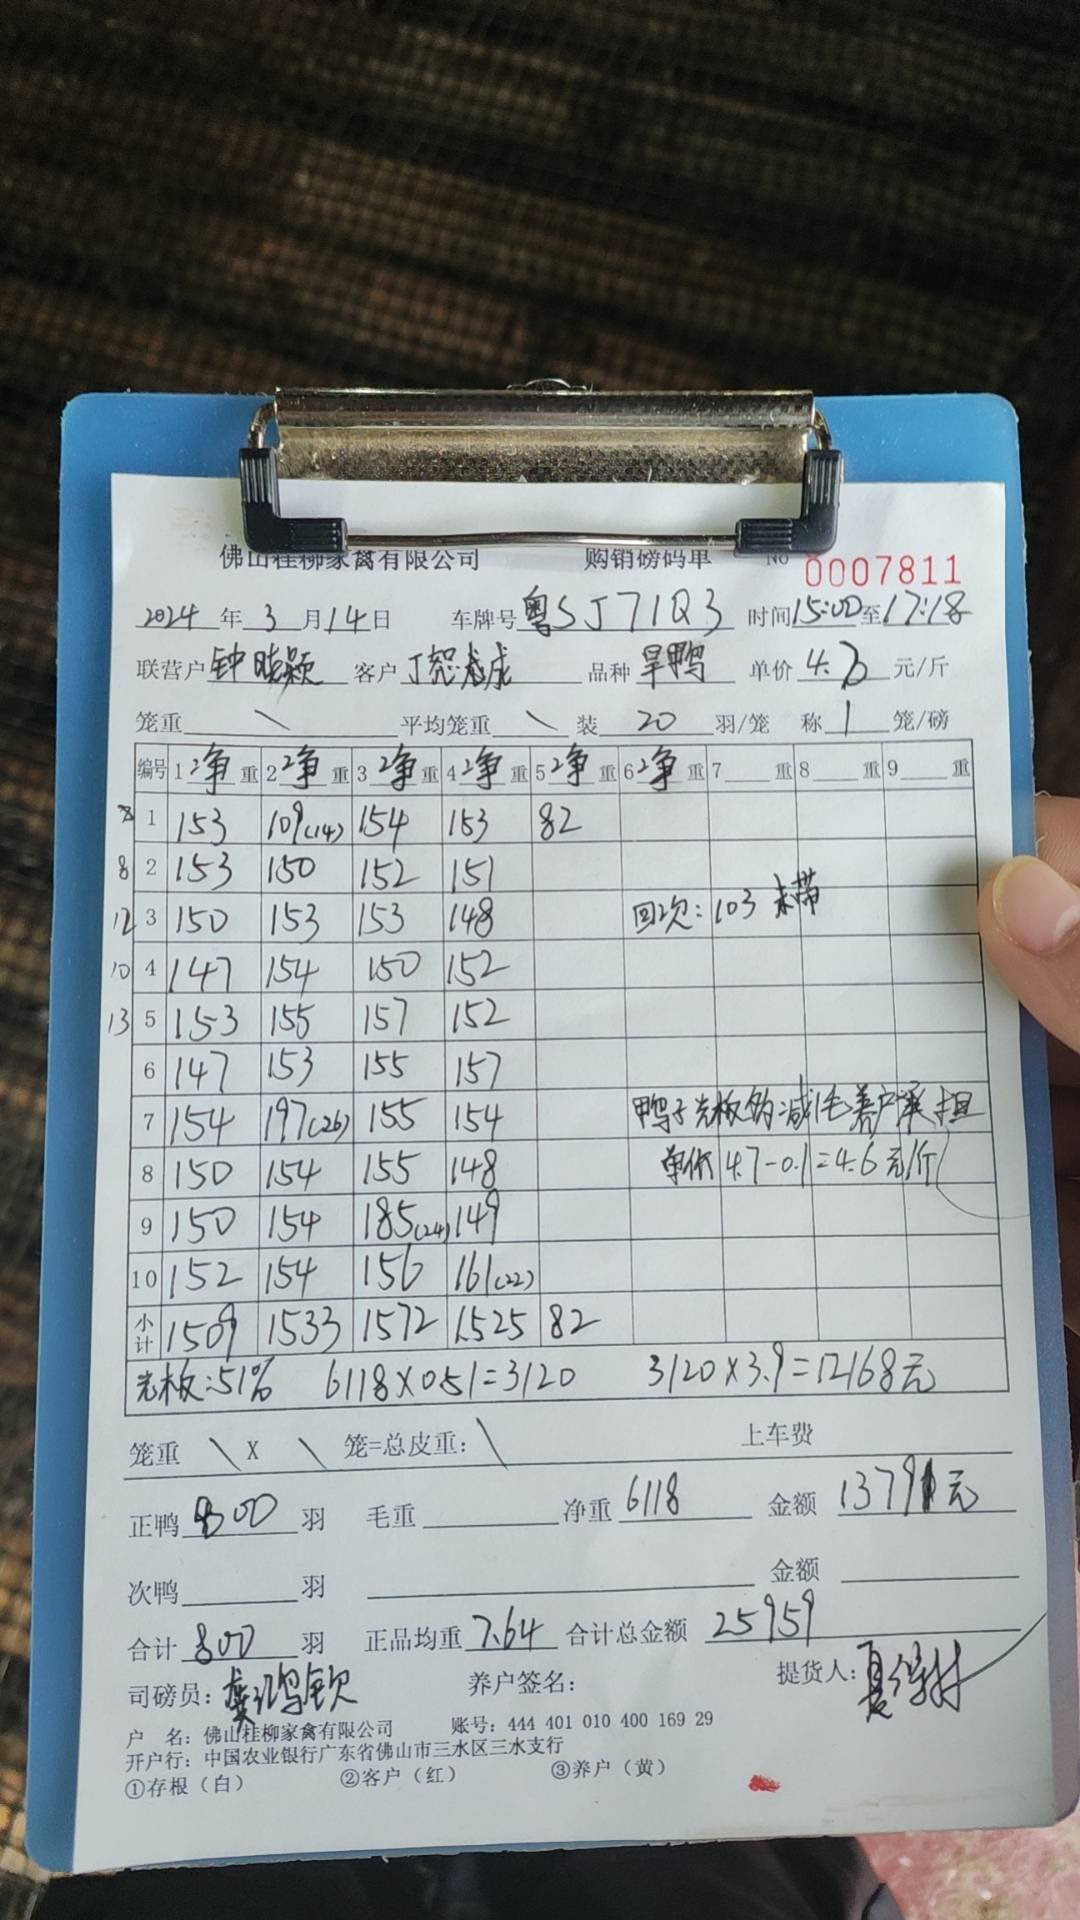 佛山桂柳家禽有限公司 购销磅码单 No 0007811
2024 年 3 月 14 日 车牌号 粤SJ71Q3 时间 15:00 至 17:18
联营户 钟晓颖 客户 品种 旱鸭 单价 4.7 元/斤
笼重 \ 平均笼重 \ 装 20 羽/笼 称 1 笼/磅
编号 1 净 重 2 净 重 3 净 重 4 净 重 5 净 重 6 净 重 7 重 8 重 9 重
1 153 109(14) 154 153 82
8 2 153 150 152 151
12 3 150 153 153 148 回次: 103 未带
10 4 147 154 150 152
13 5 153 155 157 152
6 147 153 155 157
7 154 197(26) 155 154 鸭子光板的减1毛养户承担
8 150 154 155 148 单价 4.7-0.1=4.6元/斤
9 150 154 185(24) 149
10 152 154 156 161(22)
小计 1509 1533 1572 1525 82
光板:51% 6118×0.51=3120 3120×3.9=12168元
笼重 \ X \ 笼=总皮重: \ 上车费
正鸭 800 羽 毛重 净重 6118 金额 13791元
次鸭 羽 金额
合计 800 羽 正品均重 7.64 合计总金额 25959
司磅员: 龚鸿钦 养户签名: 提货人:
户 名: 佛山桂柳家禽有限公司 账号: 444 401 010 400 169 29
开户行: 中国农业银行广东省佛山市三水区三水支行
①存根（白） ②客户（红） ③养户（黄）